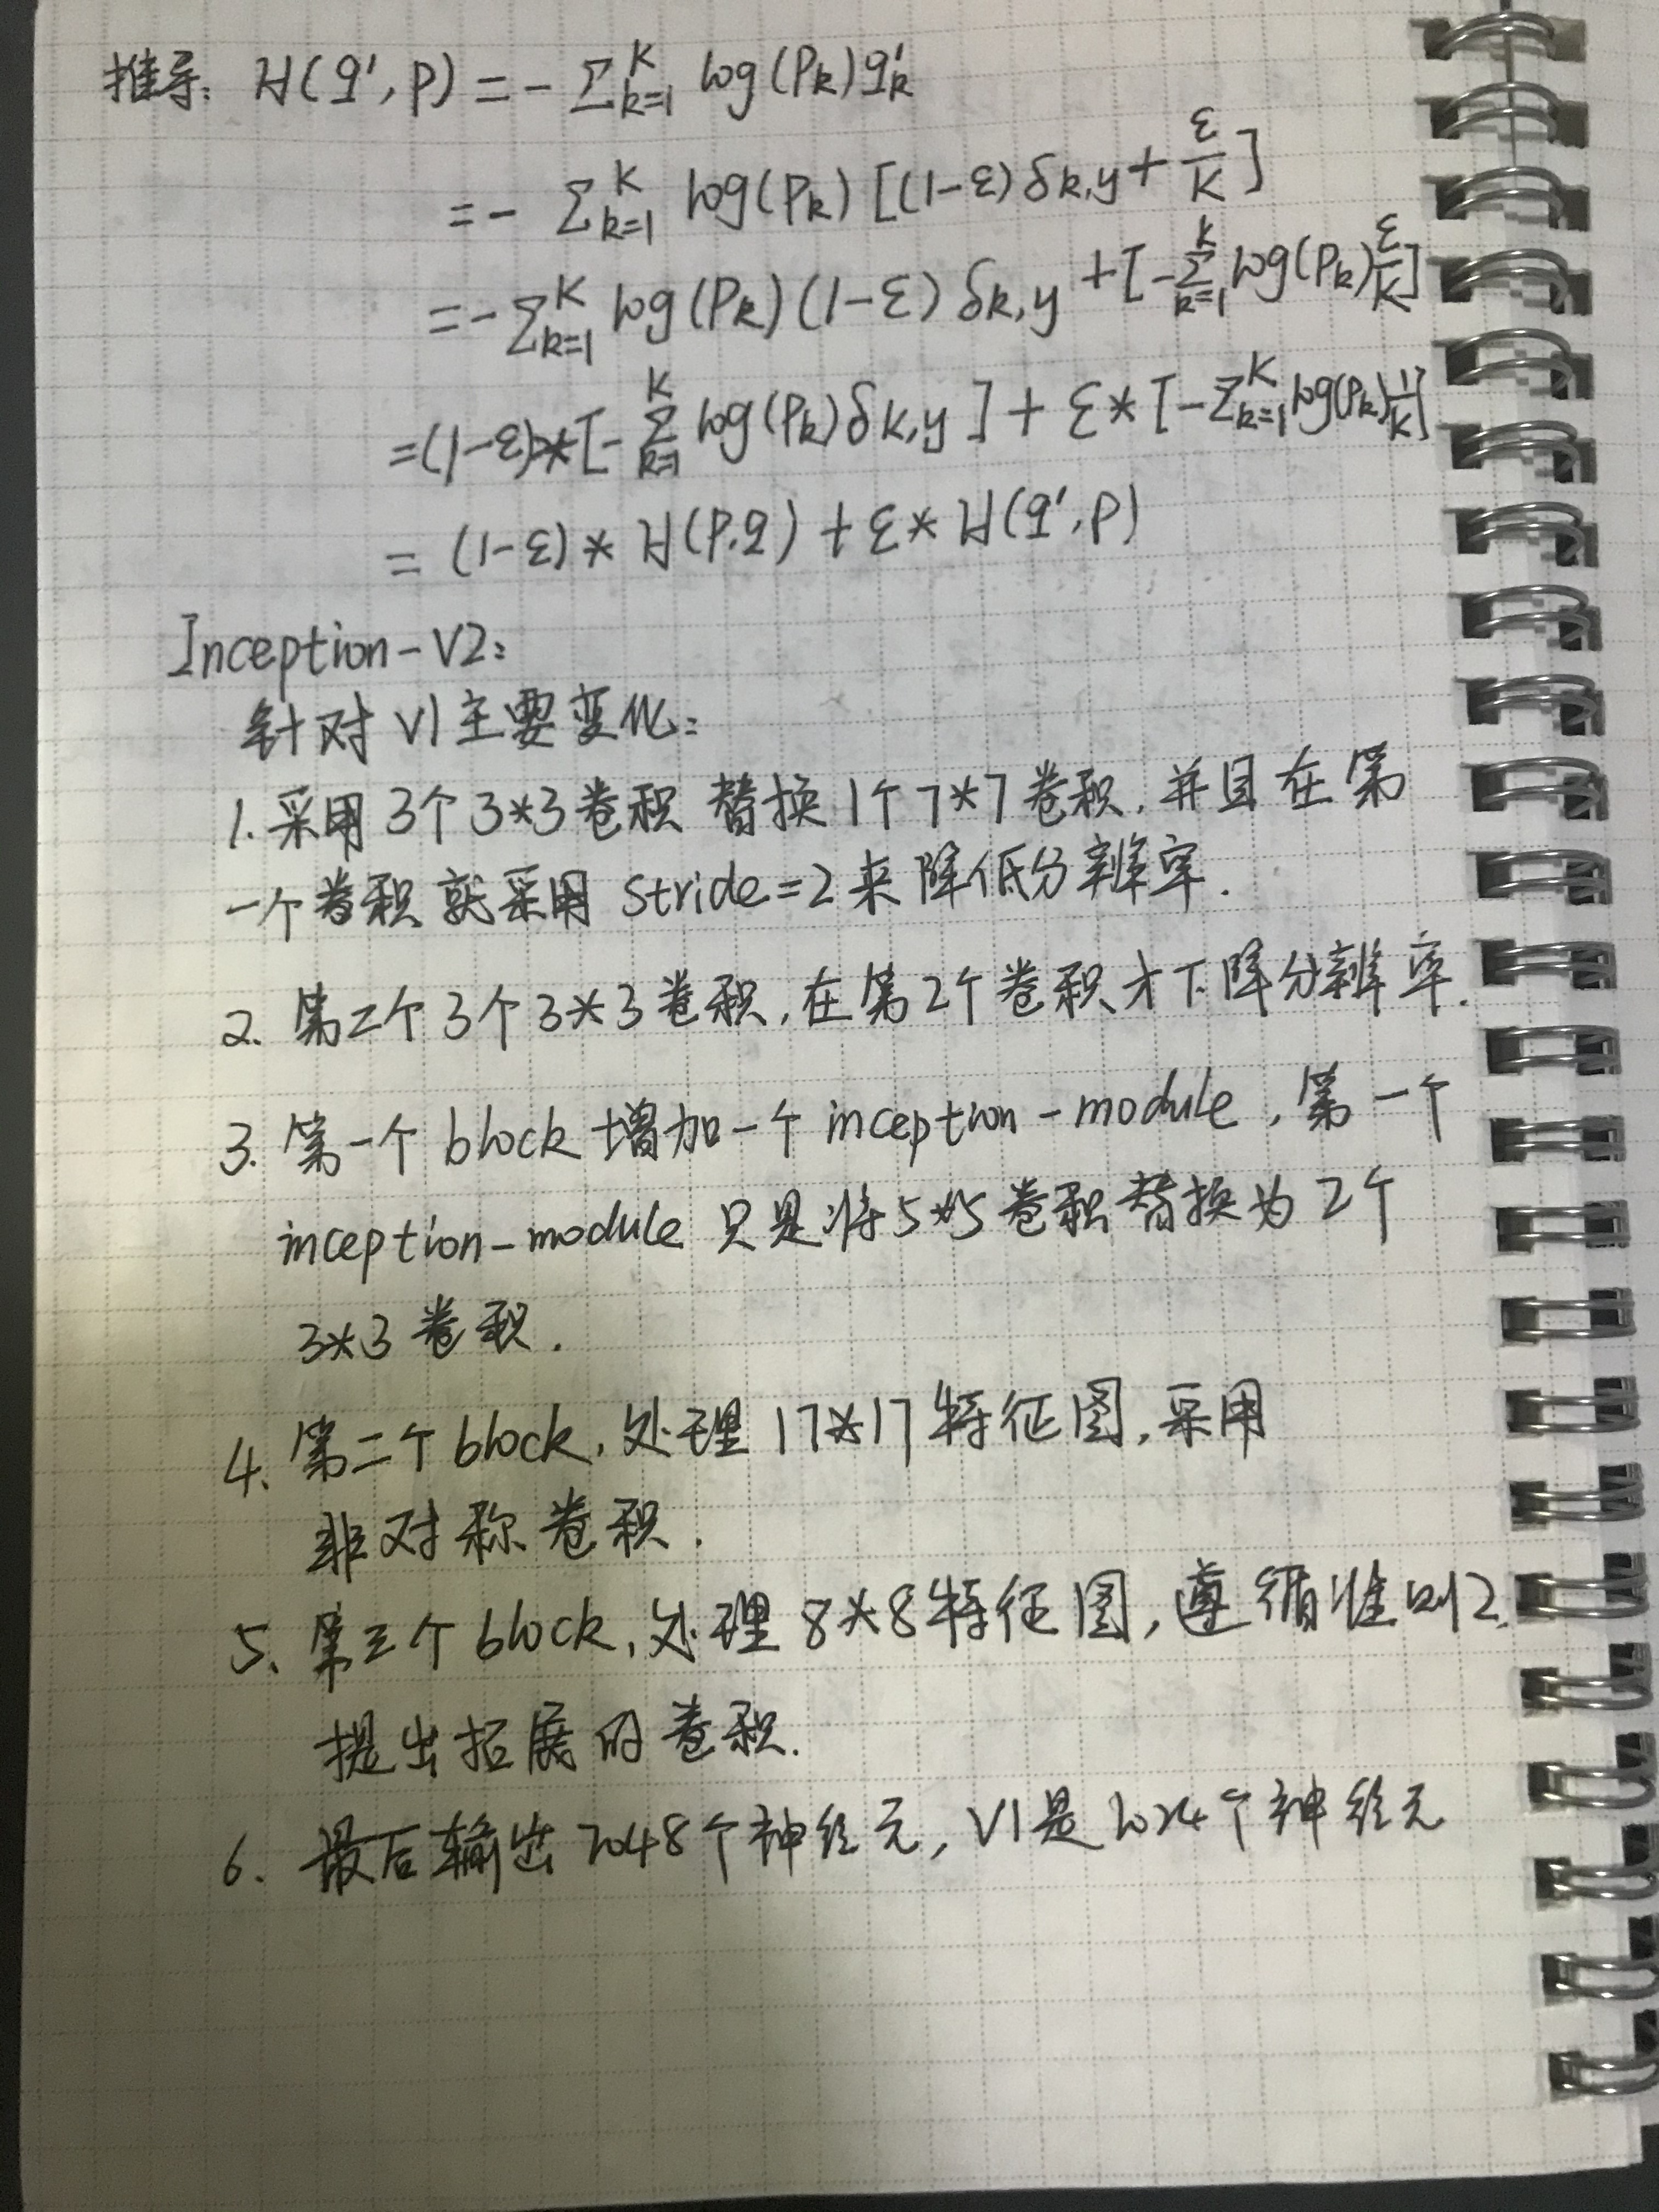 推导: H(q',p) = - Σ_{k=1}^{K} log(Pk)q'k
= - Σ_{k=1}^{K} log(Pk) [(1-ε)δk,y + ε/K]
= - Σ_{k=1}^{K} log(Pk)(1-ε)δk,y + [-Σ_{k=1}^{K} log(Pk) ε/K]
= (1-ε)*[-Σ_{k=1}^{K} log(Pk)δk,y] + ε*[-Σ_{k=1}^{K} log(Pk) 1/K]
= (1-ε) * H(p,q) + ε * H(q',p)
Inception-V2:
针对V1主要变化:
1. 采用3个3*3卷积替换1个7*7卷积,并且在第
一个卷积就采用stride=2来降低分辨率.
2. 第二个3个3*3卷积,在第2个卷积才下降分辨率.
3. 第一个block增加一个inception-module,第一个
inception-module只是将5*5卷积替换为2个
3*3卷积.
4. 第二个block,处理17*17特征图,采用
非对称卷积.
5. 第三个block,处理8*8特征图,遵循准则2.
提出拓展的卷积.
6. 最后输出2048个神经元,V1是1024个神经元